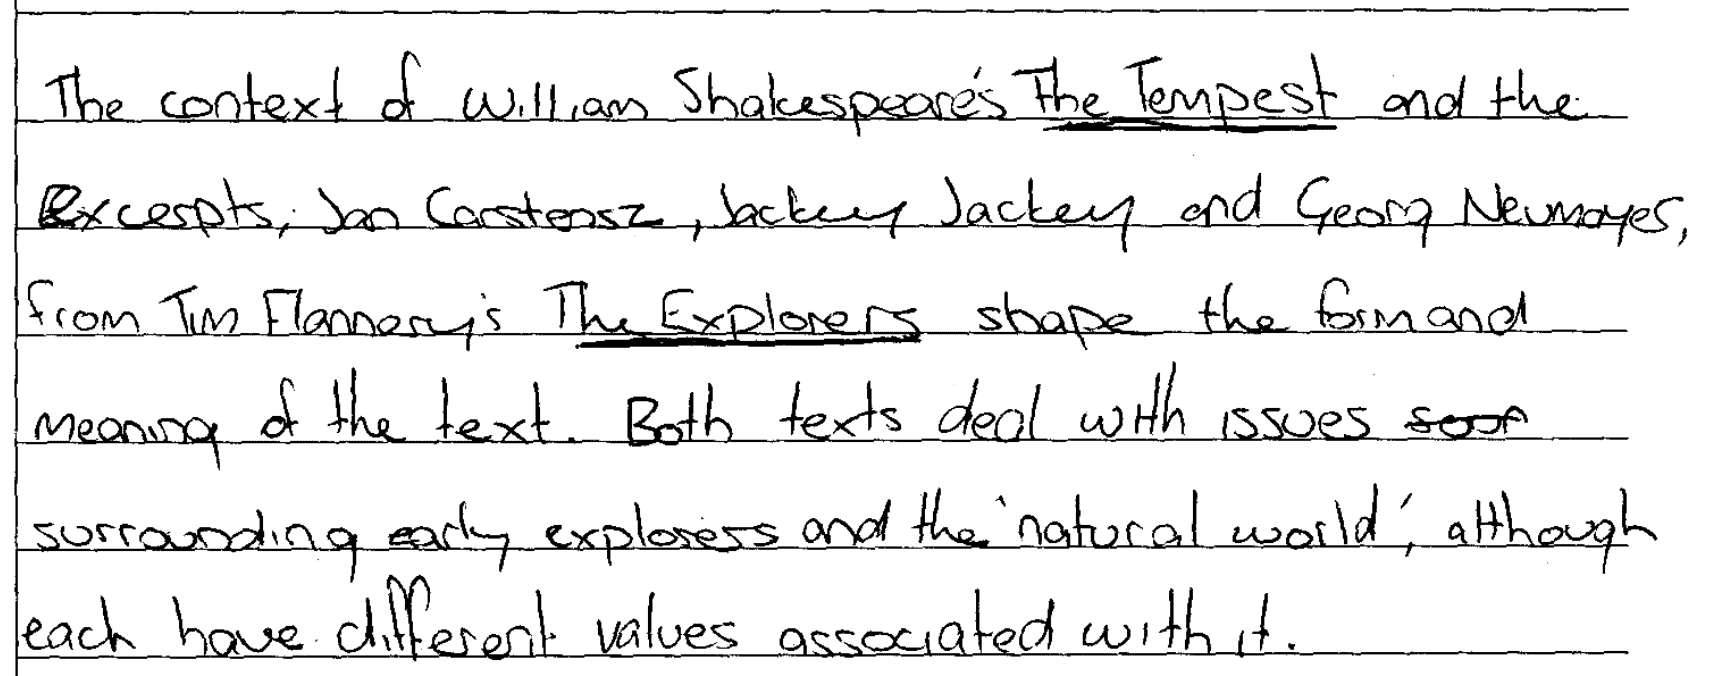 The context of William Shakespeare's The Tempest and the
Excerpts, Jan Carstensz, Jackey Jackey and Georg Neumayer,
from Tim Flannery's The Explorers shape the form and
meaning of the text. Both texts deal with issues
surrounding early explorers and the 'natural world', although
each have different values associated with it.